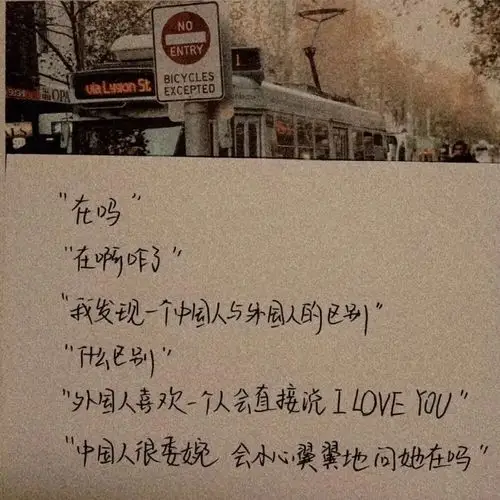 NO
ENTRY
BICYCLES
EXCEPTED
1
via Lygon St
"在吗"
"在啊咋了"
"我发现一个中国人与外国人的区别"
"什么区别"
"外国人喜欢一个人会直接说 I LOVE YOU"
"中国人很委婉 会小心翼翼地问她在吗"